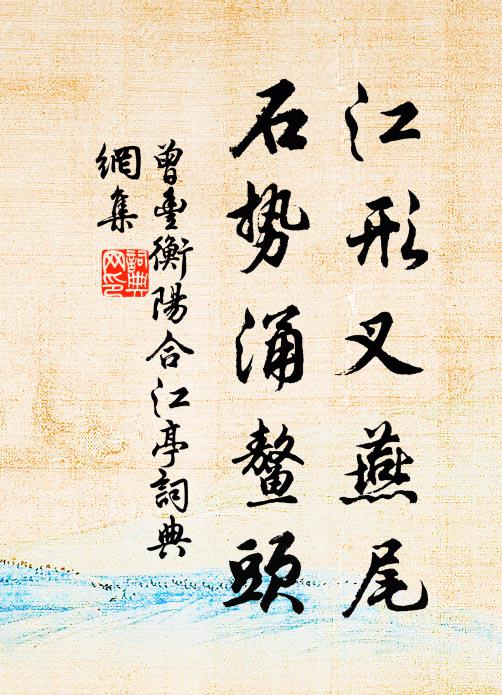 江形叉燕尾
石势涌鳌頭
曾豊衡陽合江亭詞典
網集
詞典网印